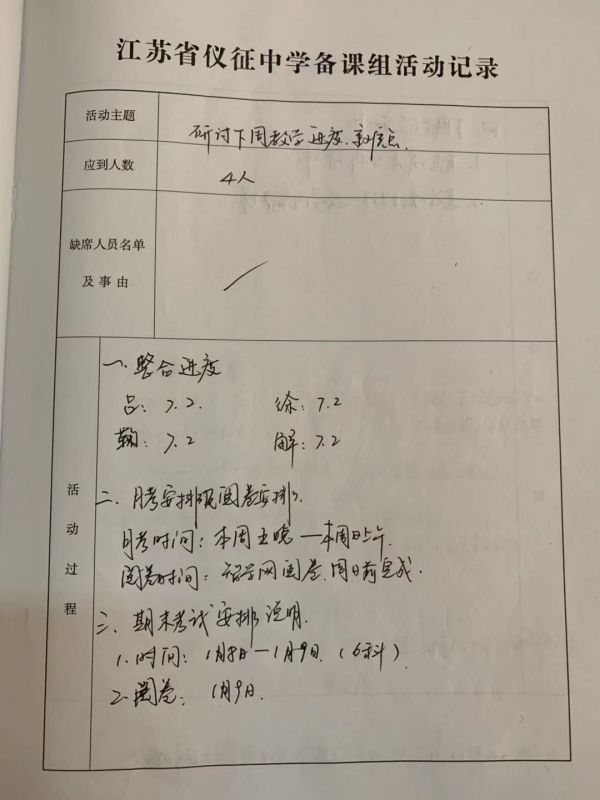 江苏省仪征中学备课组活动记录
活动主题
研讨下周教学进度、
应到人数
4人
缺席人员名单
及事由
活动过程
一、整合进度
吕：7.2. 徐：7.2
鞠：7.2 解：7.2
二、月考安排及阅卷安排.
月考时间：本周五晚—本周日上午.
阅卷时间：智学网阅卷,周日前完成.
三、期末考试安排说明.
1.时间：1月8日—1月9日.（6科）
2.阅卷：1月9日.